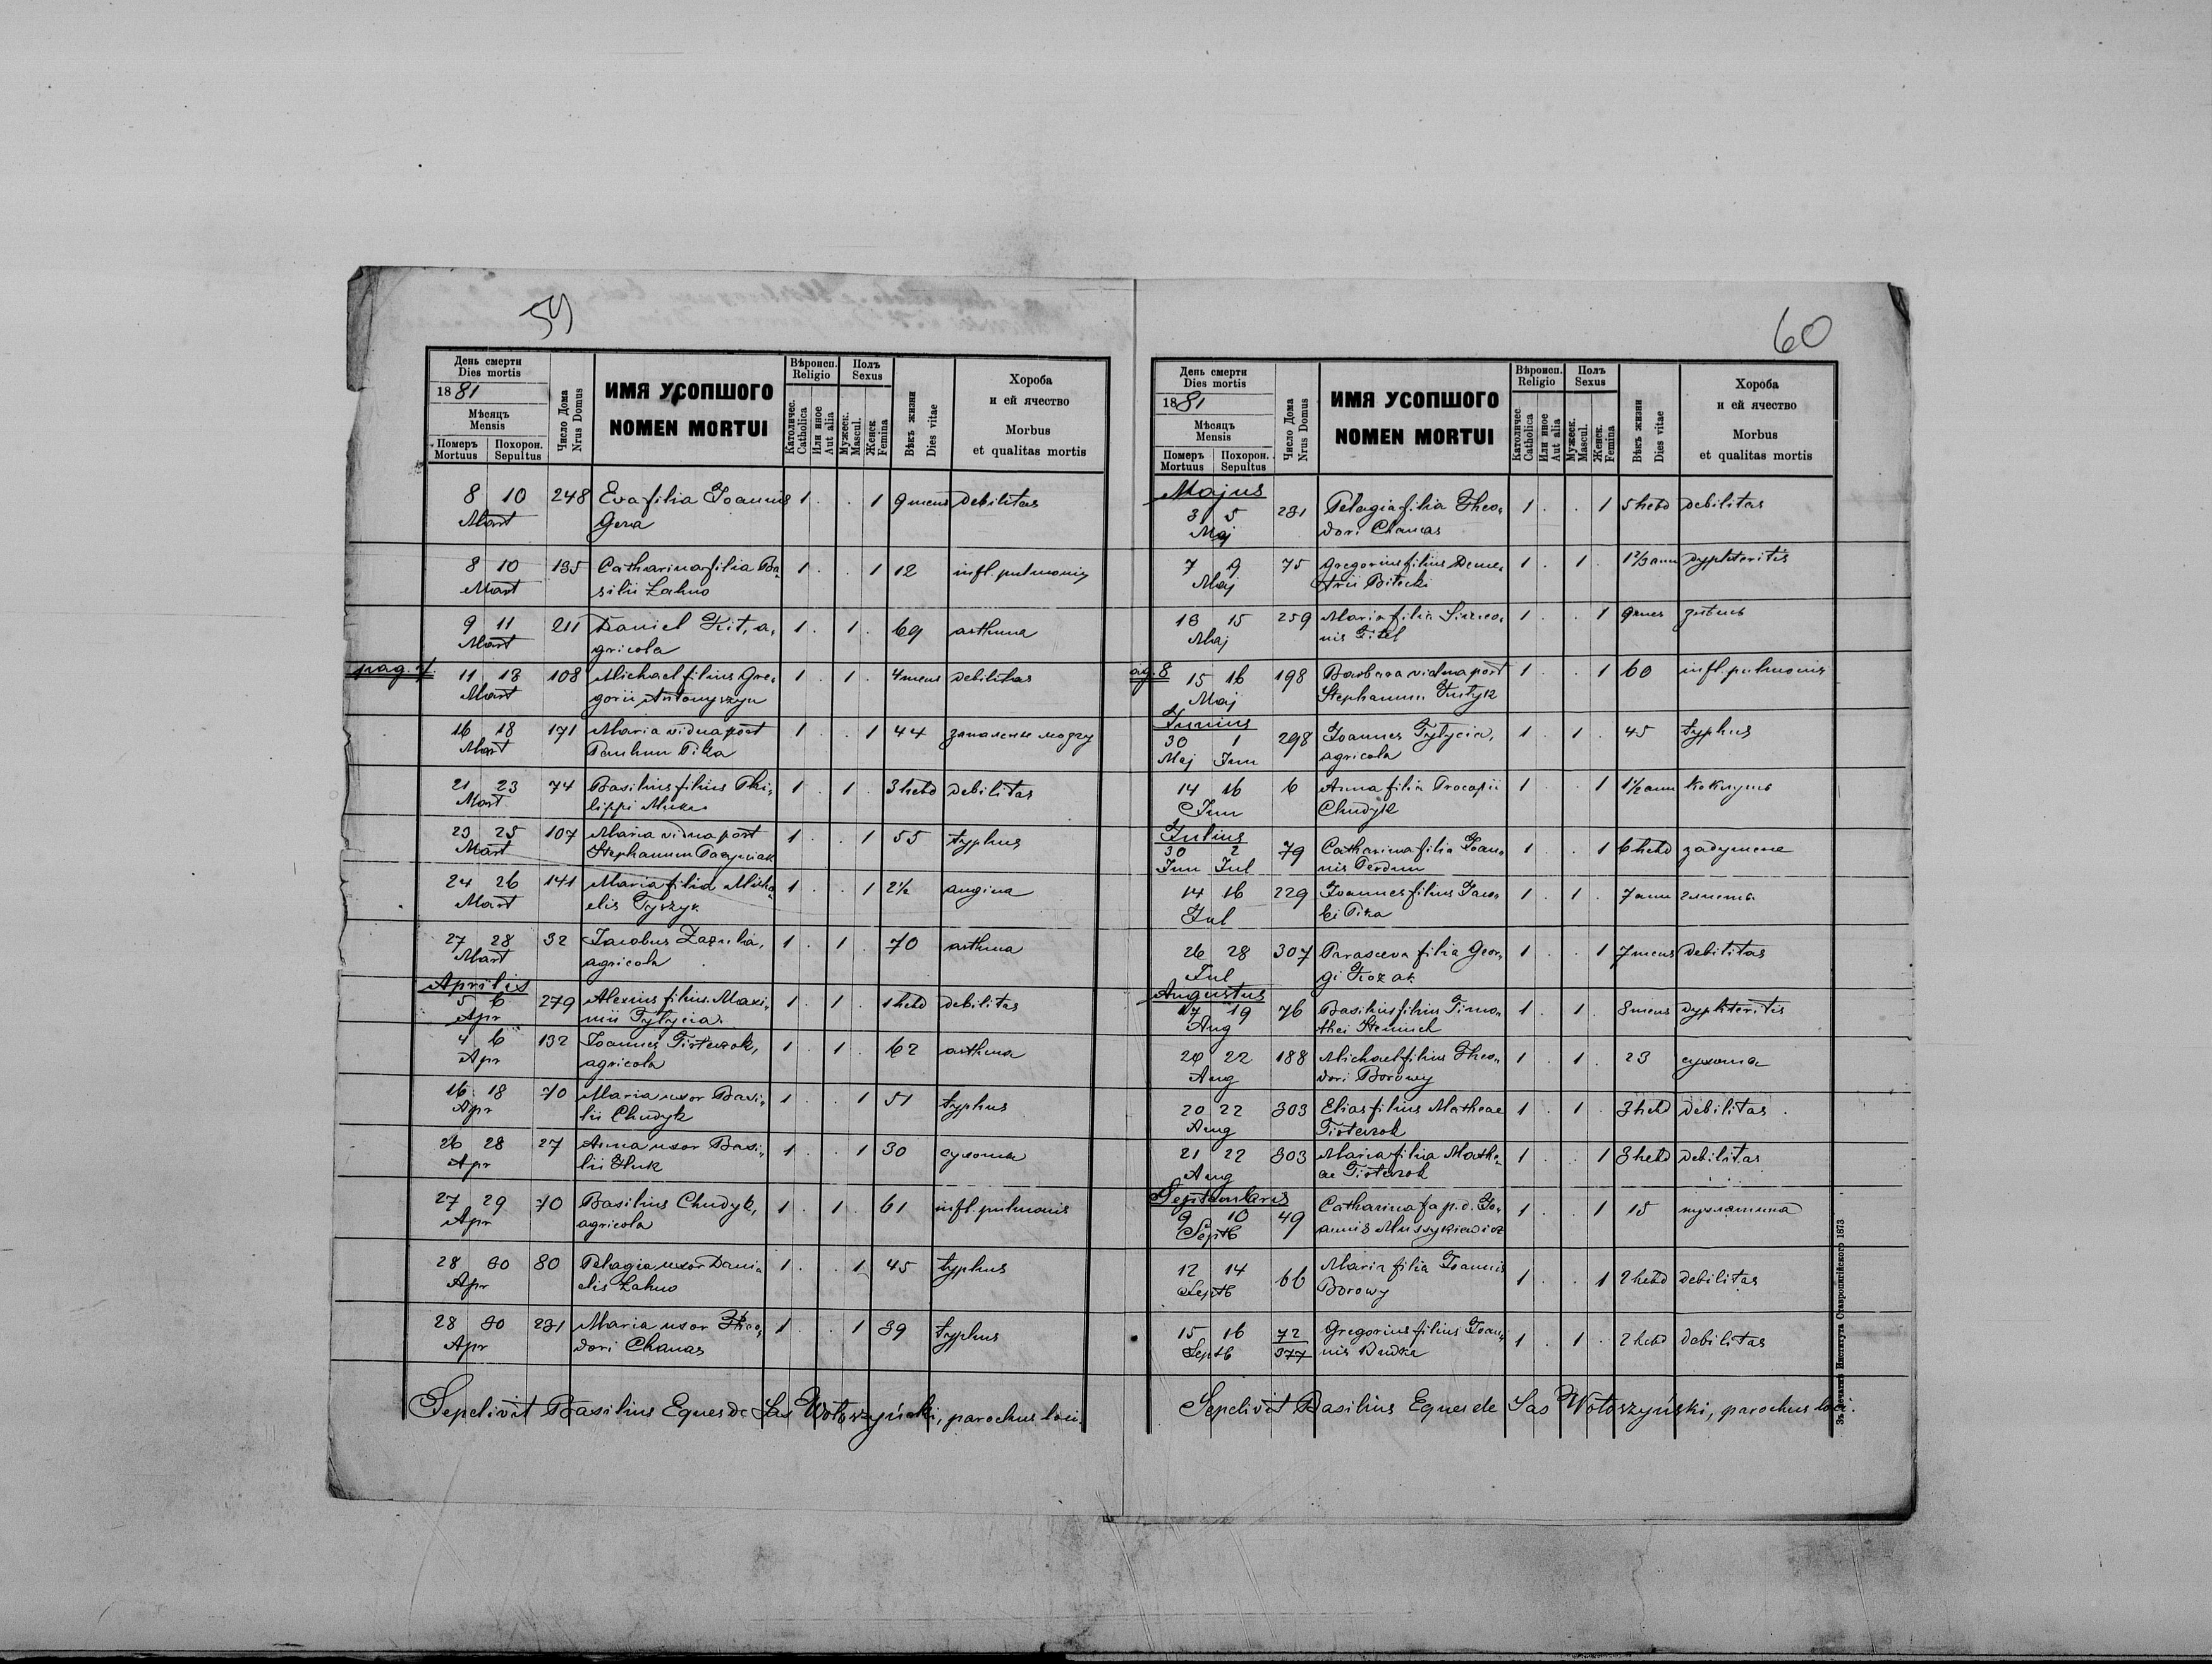 59
День смерти
Dies mortis
1881
Мѣсяцъ
Mensis
Померъ Похорон.
Mortuus Sepultus
Число Дома
Nrus Domus
ИМЯ УСОПШОГО
NOMEN MORTUI
Вѣроисп.
Religio
Католичес.
Catholica
Или иное
Aut alia
Полъ
Sexus
Мужеск.
Mascul.
Женск.
Femina
Вѣкъ жизни
Dies vitae
Хороба
и ей ячество
Morbus
et qualitas mortis
8 10 248 Eva filia Joannis 1 . . 1 9 mens debilitas
Mart Gera
8 10 135 Catharina filia Ba„ 1 . . 1 12 infl. pulmonis
Mart silii Lahno
9 11 211 Daniel Kit, a, 1 . 1 . 69 asthma
Mart gricola
pag. 7. 11 13 108 Michael filius Gre, 1 . 1 . 4 mens debilitas
Mart gorii Antonyszyn
16 18 171 Maria vidua post 1 . . 1 44 запаленье мозгу
Mart Paulum Pika
21 23 74 Basilius filius Phi, 1 . 1 . 3 hebd debilitas
Mart lippi
23 25 107 Maria vidua post 1 . . 1 55 typhus
Mart Stephanum
24 26 141 Maria filia Micha„ 1 . . 1 2½ angina
Mart elis Tyszyk
27 28 32 Jacobus Zazula, 1 . 1 . 70 asthma
Mart agricola
Aprilis
5 6 279 Alexius filius Maxi„ 1 . 1 . 1 hebd debilitas
Apr mii Tytycia.
4 6 132 Joannes Fisterzok, 1 . 1 . 62 asthma
Apr agricola
16 18 70 Maria uxor Basi„ 1 . . 1 51 typhus
Apr lii Chudyk
26 28 27 Anna uxor Basi„ 1 . . 1 30 сухоты
Apr lii Huk
27 29 70 Basilius Chudyk, 1 . 1 . 61 infl. pulmonis
Apr agricola
28 30 80 Pelagia uxor Dani„ 1 . . 1 45 typhus
Apr elis Lahno
28 30 231 Maria uxor Theo, 1 . . 1 39 typhus
Apr dori Chanas
Sepelivit Basilius Eques de Sas Wołoszyński, parochus loci.
60
День смерти
Dies mortis
1881
Мѣсяцъ
Mensis
Померъ Похорон.
Mortuus Sepultus
Число Дома
Nrus Domus
ИМЯ УСОПШОГО
NOMEN MORTUI
Вѣроисп.
Religio
Католичес
Catholica
Или иное
Aut alia
Полъ
Sexus
Мужеск.
Mascul.
Женск.
Femina
Вѣкъ жизни
Dies vitae
Хороба
и ей ячество
Morbus
et qualitas mortis
Majus
3 5 231 Pelagia filia Theo, 1 . . 1 5 hebd debilitas
Maj dori Chanas
7 9 75 Gregorius filius Deme, 1 . 1 . 1⅔ ann dyphteritis
Maj trii Bilecki
13 15 259 Maria filia Simeo, 1 . . 1 9 mens
Maj nis Fitel
ag. 8 15 16 198 Barbara vidua post 1 . . 1 60 infl. pulmonis
Maj Stephanum
Junius
30 1 298 Joannes Tytycia, 1 . 1 . 45 typhus
Maj Jun agricola
14 16 6 Anna filia Procopii 1 . . 1 1½ ann коклушъ
Jun Chudyk
Julius
30 2 79 Catharina filia Joan„ 1 . . 1 6 hebd задушене
Jun Jul nis Perdun
14 16 229 Joannes filius Jaco„ 1 . 1 . 7 ann
Jul bi Pika
26 28 307 Parasceva filia Geor„ 1 . . 1 7 mens debilitas
Jul gi Kozak
Augustus
17 19 76 Basilius filius Timo„ 1 . 1 . 8 mens dyphteritis
Aug thei
20 22 188 Michael filius Theo„ 1 . 1 . 23 сухоты
Aug dori Borowy
20 22 303 Elias filius Matheae 1 . 1 . 3 hebd debilitas.
Aug Fisterzok
21 22 303 Maria filia Mathe, 1 . . 1 3 hebd debilitas
Aug ae Fisterzok
Septembris
9 10 49 Catharina fa p. d. Jo, 1 . . 1 15
Septb annis Mussykiewicz
12 14 66 Maria filia Joannis 1 . . 1 2 hebd debilitas
Septb Borowy
15 16 72 Gregorius filius Joan„ 1 . 1 . 2 hebd debilitas
Septb 377 nis Dudka
Sepelivit Basilius Eques de Sas Wołoszyński, parochus loci.
Зъ Печатнѣ Института Ставропигійского 1873